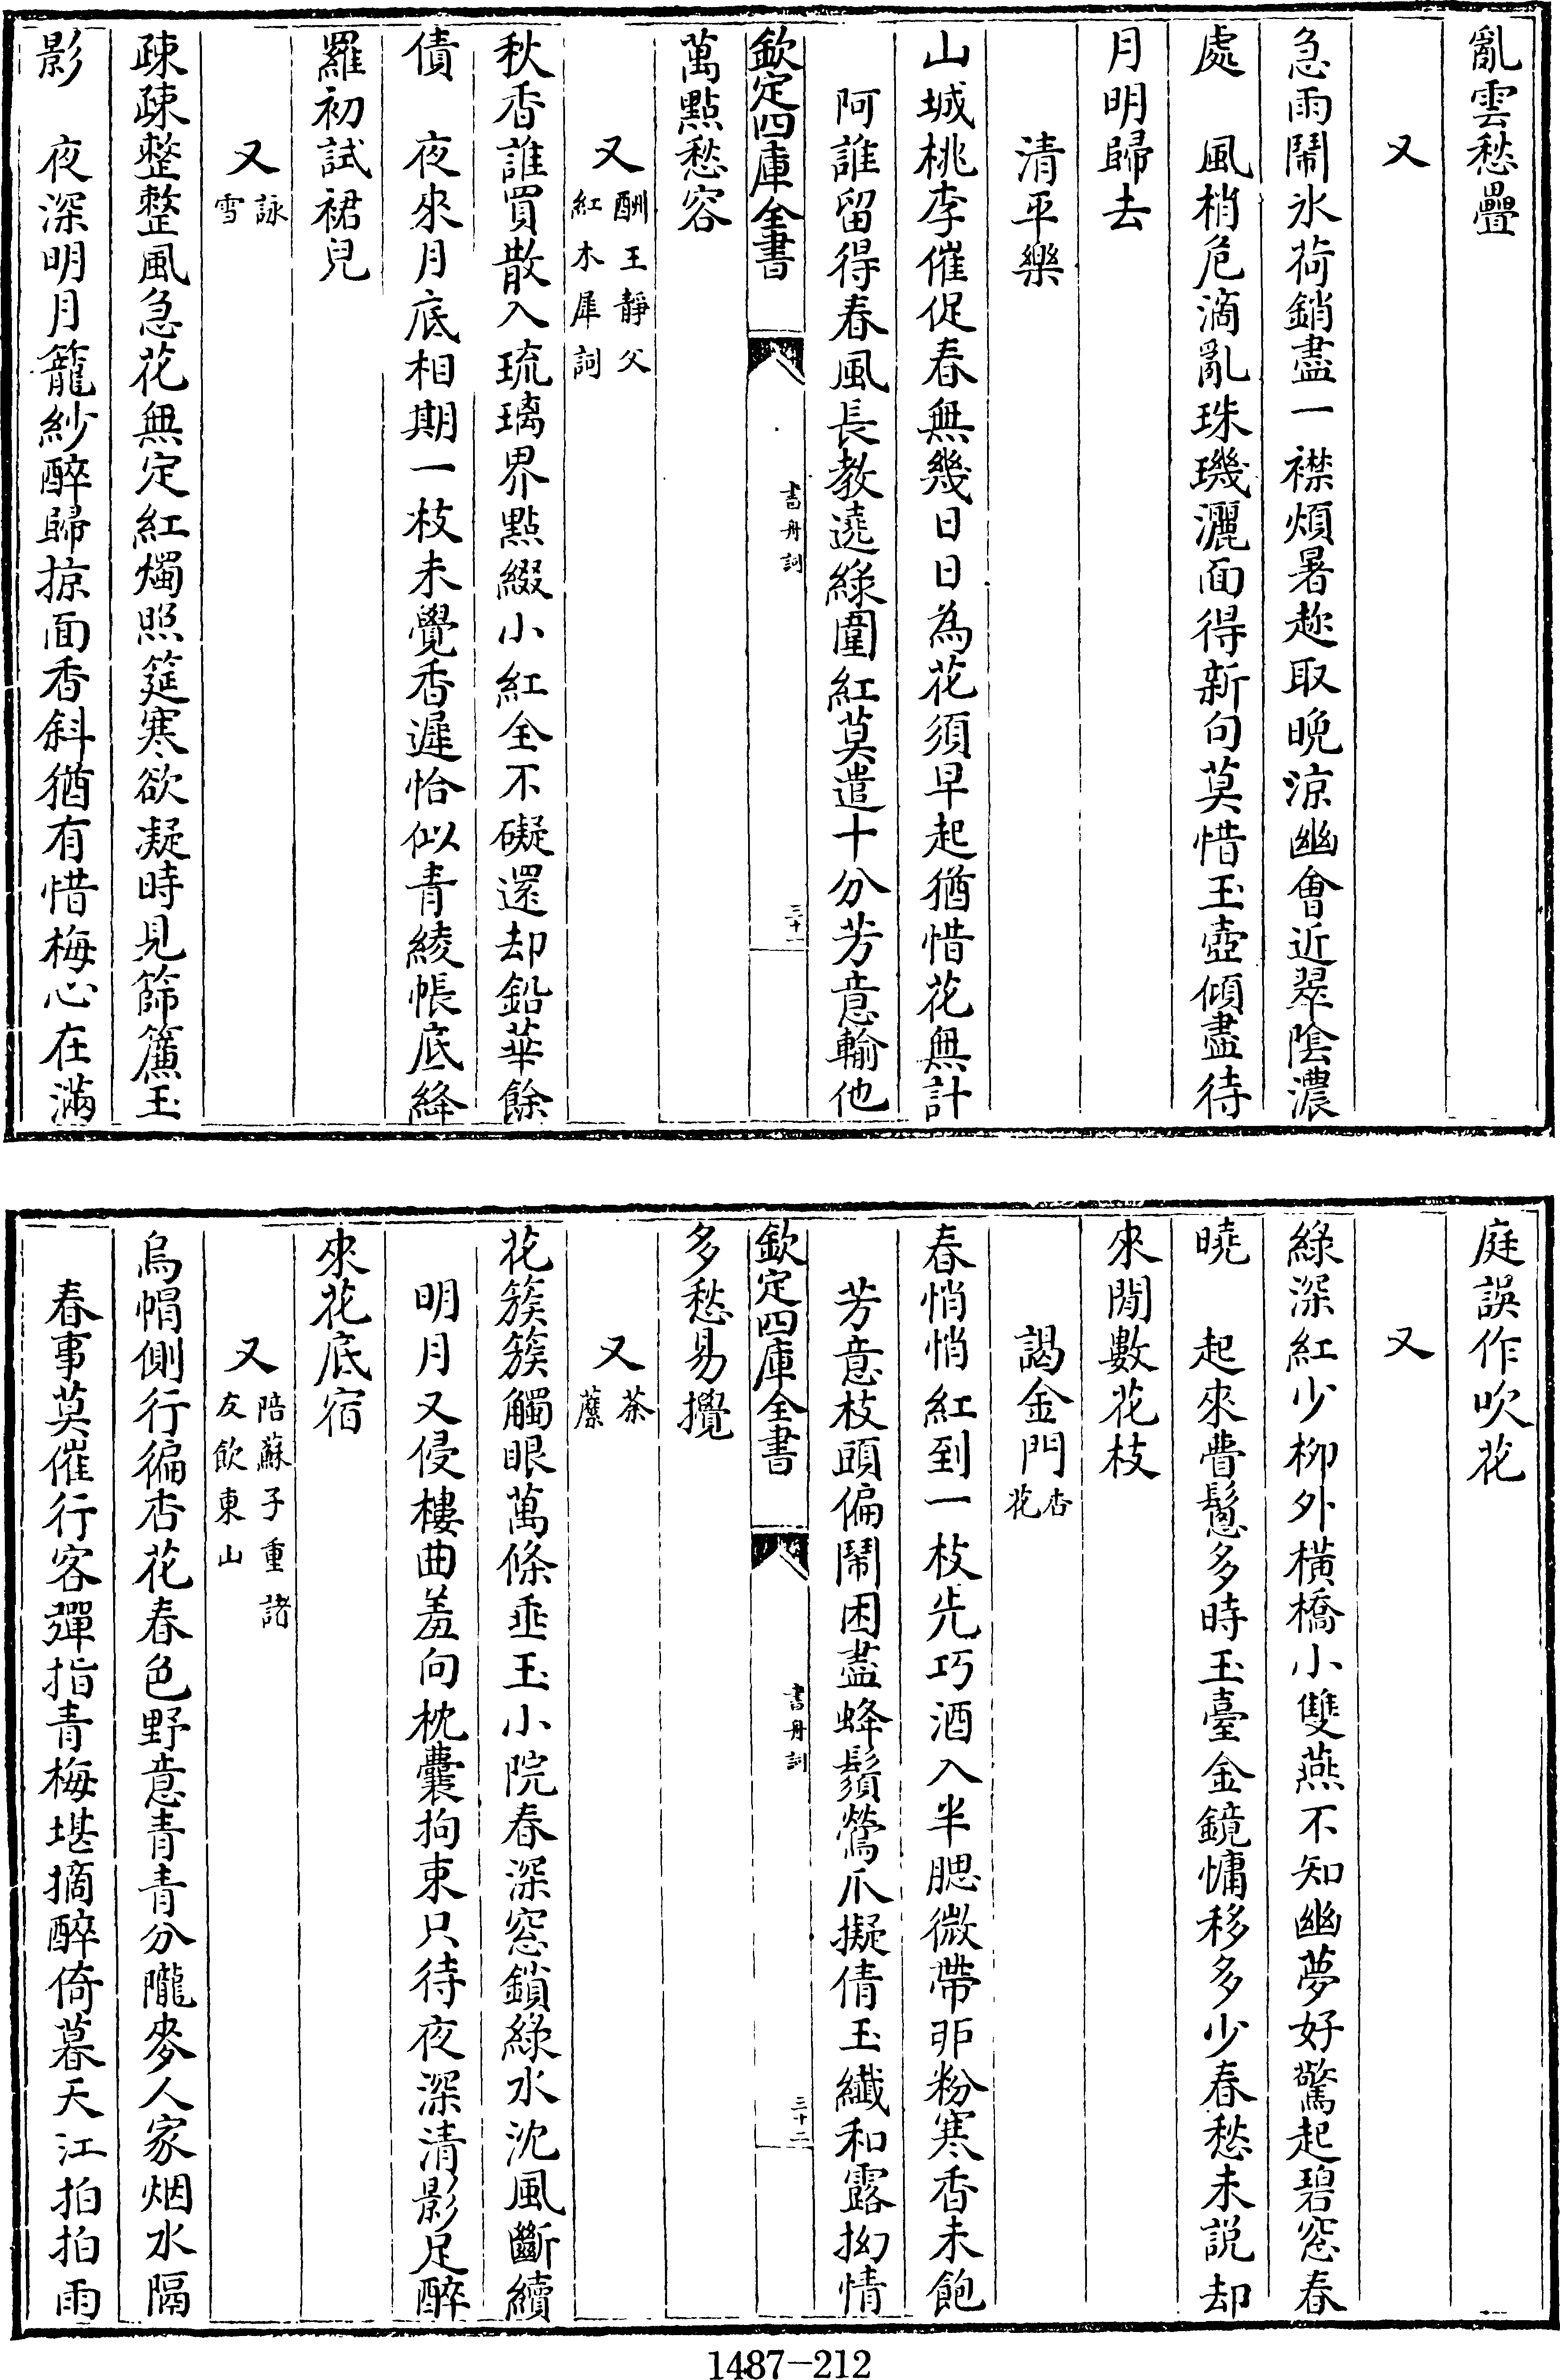 亂雲愁疊
又
急雨鬧氷荷銷盡一襟煩暑趂取晩涼幽會近翠隂濃
處　風梢危滴亂珠璣灑面得新句莫惜玉壺傾盡待
月明歸去
清平樂
山城桃李催促春無幾日日為花須早起猶惜花無計
阿誰留得春風長教遶綠圍紅莫遣十分芳意輸他
欽定四庫全書
書舟詞
三十一
萬點愁容
又 酬王靜父紅木犀詞
秋香誰買散入琉璃界點綴小紅全不礙還却鉛華餘
債　夜來月底相期一枝未覺香遲恰似青綾帳底絳
羅初試裙兒
又 詠雪
疎疎整整風急花無定紅燭照筵寒欲凝時見篩簾玉
影　夜深明月籠紗醉歸掠面香斜猶有惜梅心在滿
庭誤作吹花
又
綠深紅少柳外橫橋小雙燕不知幽夢好驚起碧窓春
曉　起來彎鬟多時玉臺金鏡慵移多少春愁未説却
來閒數花枝
謁金門 杏花
春悄悄紅到一枝先巧酒入半腮微帶卯粉寒香未飽
芳意枝頭偏鬧困盡蜂鬚鶯爪擬倩玉纖和露拗情
欽定四庫全書
書舟詞
三十二
多愁易攪
又 荼䕷
花簇簇觸眼萬條垂玉小院春深窓鎖綠水沈風斷續
明月又侵樓曲羞向枕囊拘束只待夜深清影足醉
來花底宿
又 陪蘇子重諸友飲東山
烏㡌側行徧杏花春色野意青青分隴麥人家烟水隔
春事莫催行客彈指青梅堪摘醉倚暮天江拍拍雨
1487—212